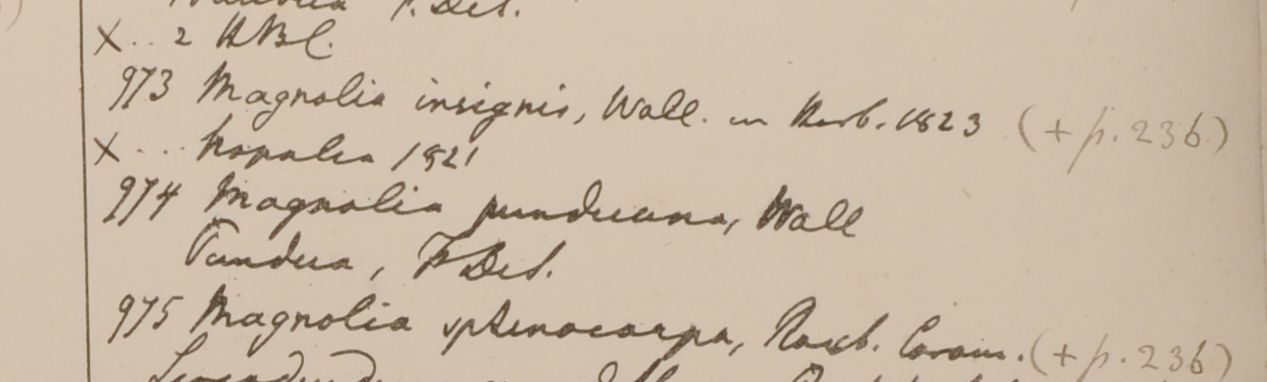 F. Des.
X .. 2 HBC.
973 Magnolia insignis, Wall. in Herb. 1823 (+ p. 236)
X ... Napalia 1821
974 Magnolia punduana, Wall
Pundua, F. Des.
975 Magnolia sphenocarpa, Roxb. Corom. (+ p. 236)